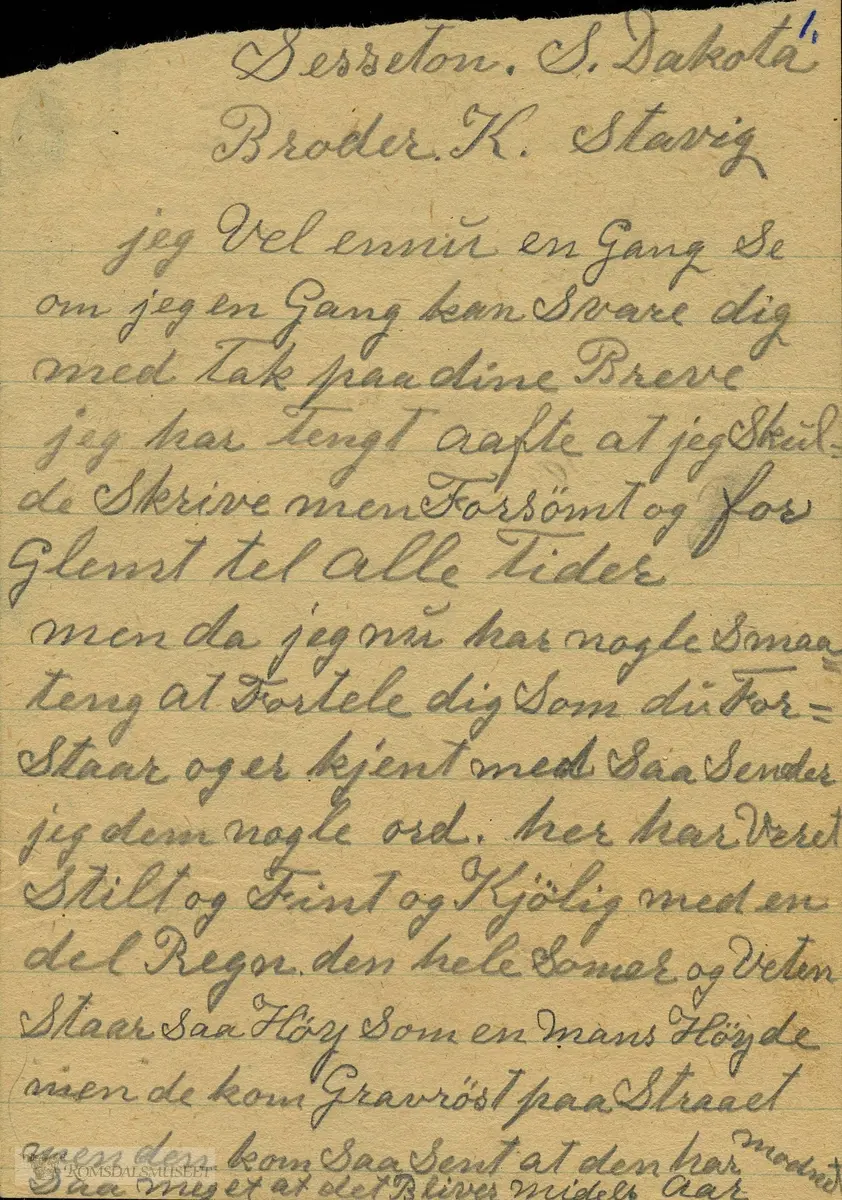 1.
Sesseton. S. Dakota
Broder. K. Stavig
jeg Vel ennŭ en Gang Se
om jeg en Gang kan Svare dig
med Tak paa dine Breve
jeg har Tengt aafte at jeg Skŭl=
de Skrive men Forsömt og for
Glemt tel alle Tider
men da jeg nŭ har nogle Smaa=
teng at Fortele dig Som dŭ For=
Staar og er kjent med Saa Sender
jeg dem nogle ord. her har Veret
Stilt og Fint og Kjölig med en
del Regn. den hele Somer og Veten
Staar Saa Höy Som en mans Höyde
men de kom Gravröst paa Straaet
men den kom Saa Sent at den har modnet
Saa meget at det Bliver midels Aar
ROMSDALSMUSEET